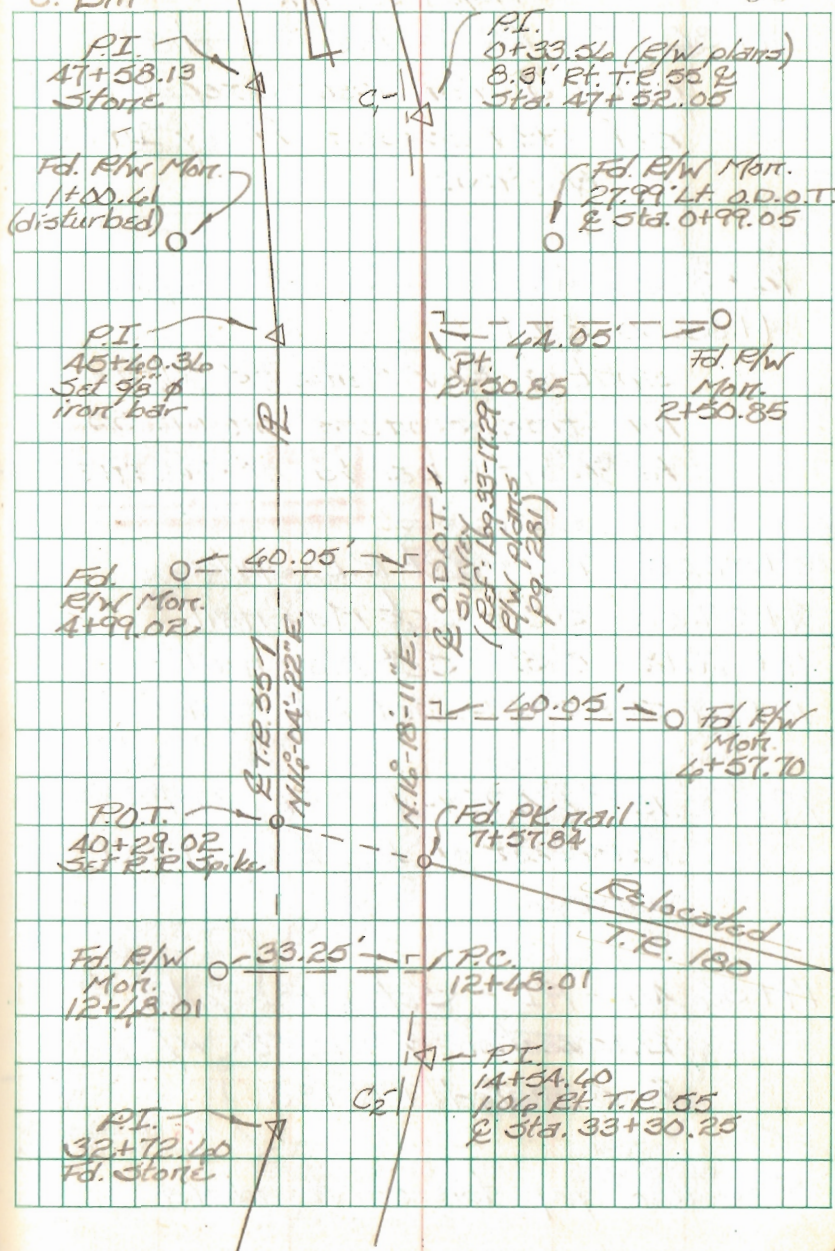 P.I.
47+58.13
Stone
P.I.
0+33.56 (R/W plans)
8.31' Rt. T.R. 55 ℄
Sta. 47+52.05
C1
Fd. R/W Mon.
1+00.61
(disturbed)
Fd. R/W Mon.
27.99' Lt. O.D.O.T.
℄ Sta. 0+99.05
P.I.
45+60.36
Set 5/8" ϕ
iron bar
44.05'
Pt.
2+50.85
Fd. R/W
Mon.
2+50.85
℄ O.D.O.T.
Survey
R/W plans
pg. 281)
40.05'
Fd.
R/W Mon.
4+99.02
℄ T.R. 55
N.16°-04'-22"E.
N.16°-18'-11"E.
40.05'
Fd. R/W
Mon.
6+57.70
P.O.T.
40+29.02
Set R.R. Spike
Fd. PK nail
7+57.84
Relocated
T.R. 180
Fd. R/W
Mon.
12+48.01
33.25'
P.C.
12+48.01
P.I.
14+54.60
1.06' Rt. T.R. 55
℄ Sta. 33+30.25
C2
P.I.
32+72.60
Fd. Stone